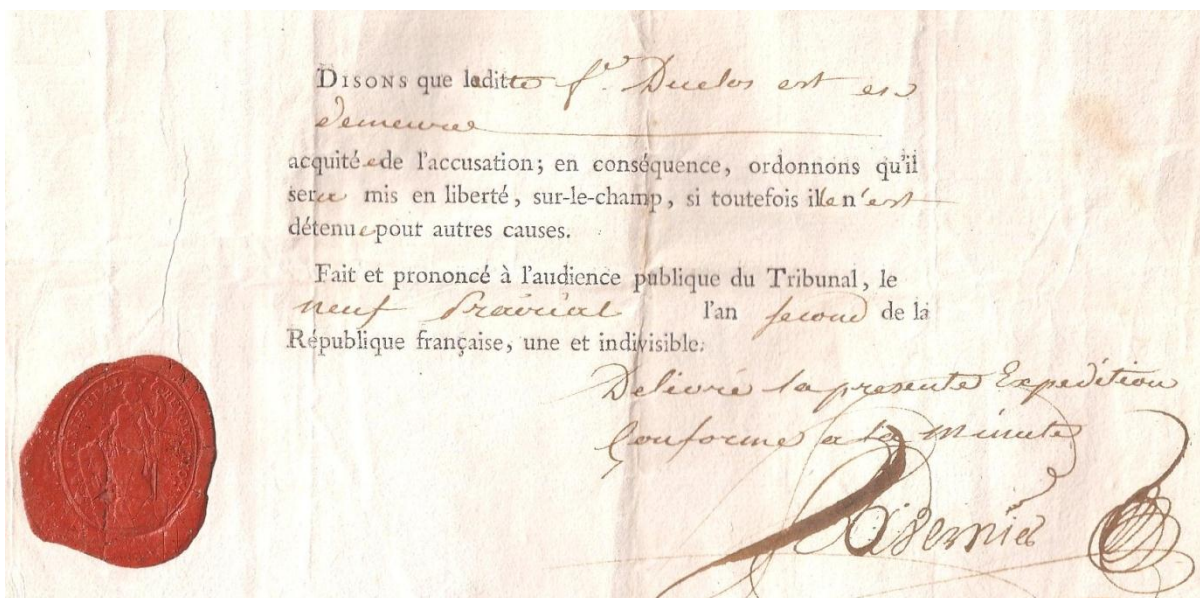 DISONS que laditte fe. Duclos est et
demeure
acquitée de l'accusation; en conséquence, ordonnons qu'il
sera mis en liberté, sur-le-champ, si toutefois ille n'est
détenue pour autres causes.
Fait et prononcé à l'audience publique du Tribunal, le
neuf Prairial l'an second de la
République française, une et indivisible.
Délivré la presente Expedition
Conforme a la Minute